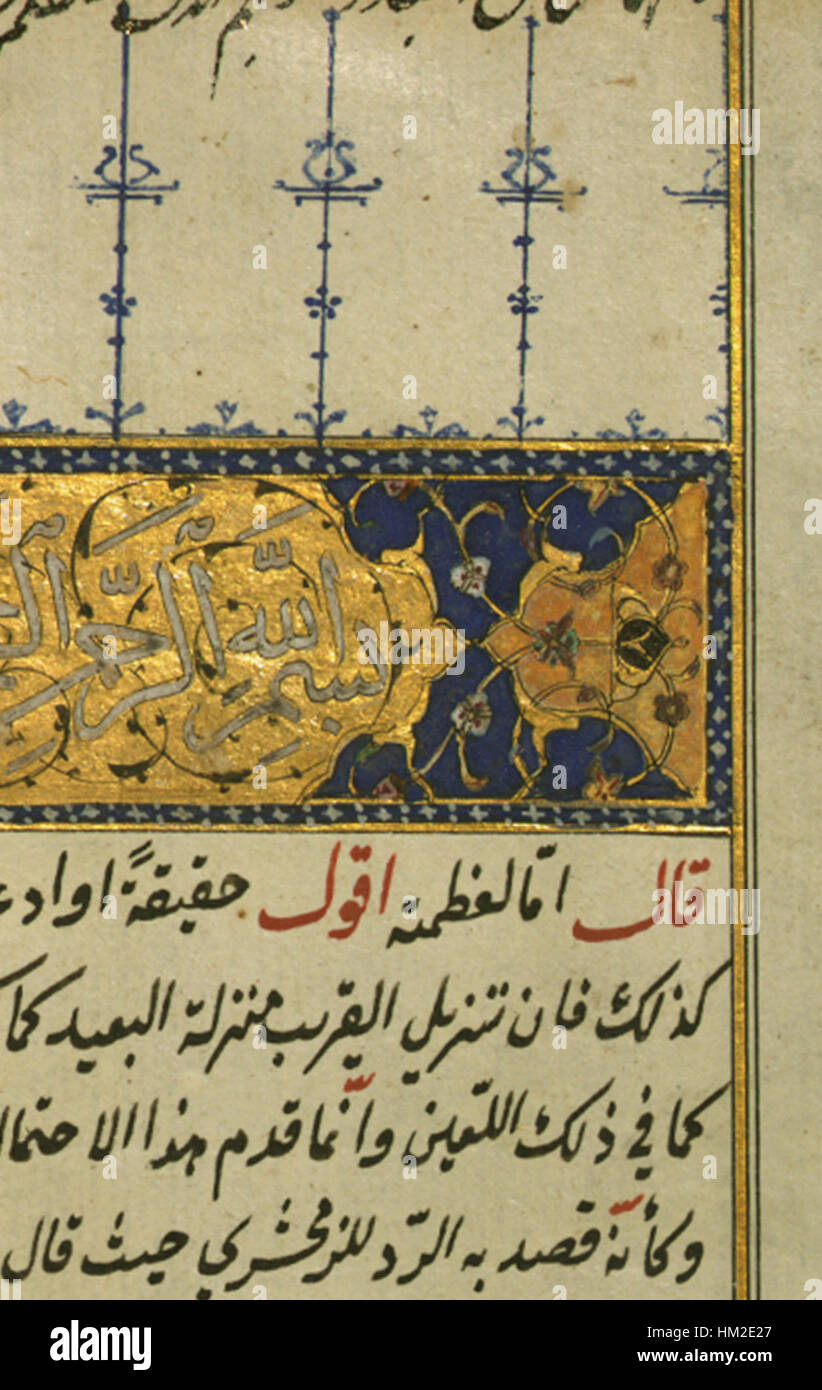 بسم الله الرحمن
قال اما لعظمته اقول حقيقةً او اد
كذلك فان تنزيل القرب منزلة البعيد كما
كما في ذلك اللعين وانّما قدم هذا الاحتما
وكأنّه قصد به الردّ للزمخشري حيث قال
alamy
a
alamy
Image ID: HM2E27
www.alamy.com